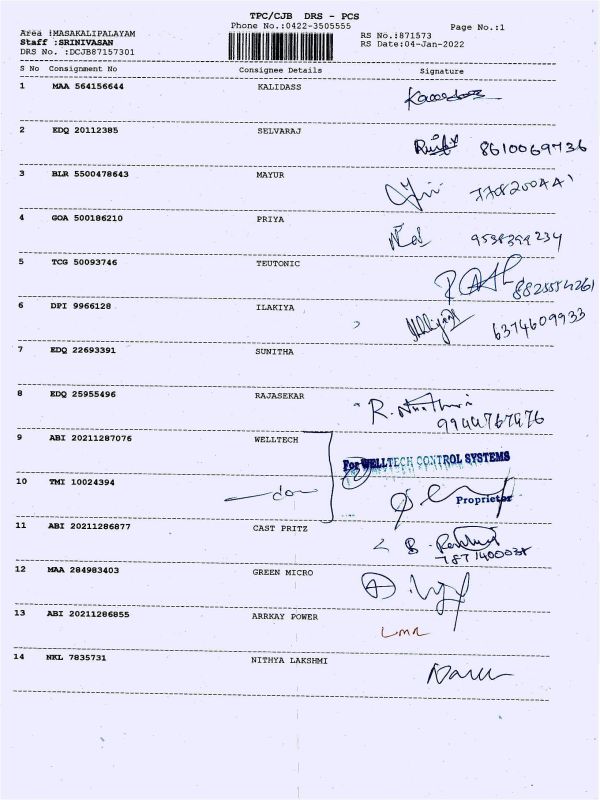 TPC/CJB DRS - PCS
Phone No.:0422-3505555
Page No.:1
Area :MASAKALIPALAYAM
Staff :SRINIVASAN
DRS No. :DCJB87157301
RS No.:871573
RS Date:04-Jan-2022
S No Consignment No Consignee Details Signature
1 MAA 564156644 KALIDASS
2 EDQ 20112385 SELVARAJ 8610069736
3 BLR 5500478643 MAYUR
4 GOA 500186210 PRIYA 9538399234
5 TCG 50093746 TEUTONIC
6 DPI 9966128 ILAKIYA 6374609933
7 EDQ 22693391 SUNITHA
8 EDQ 25955496 RAJASEKAR
9944767476
9 ABI 20211287076 WELLTECH
For WELLTECH CONTROL SYSTEMS
10 TMI 10024394 do
Proprietor
11 ABI 20211286877 CAST PRITZ
12 MAA 284983403 GREEN MICRO
13 ABI 20211286855 ARRKAY POWER
14 NKL 7835731 NITHYA LAKSHMI